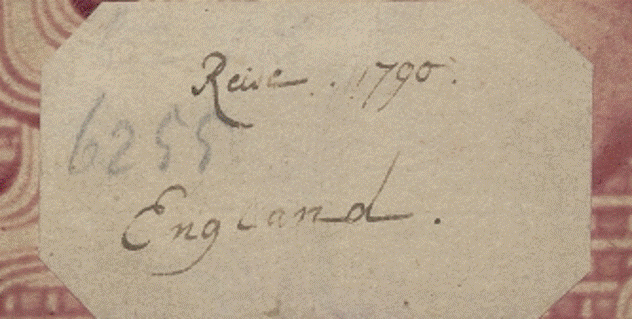 Reise. 1790.
6255
England.